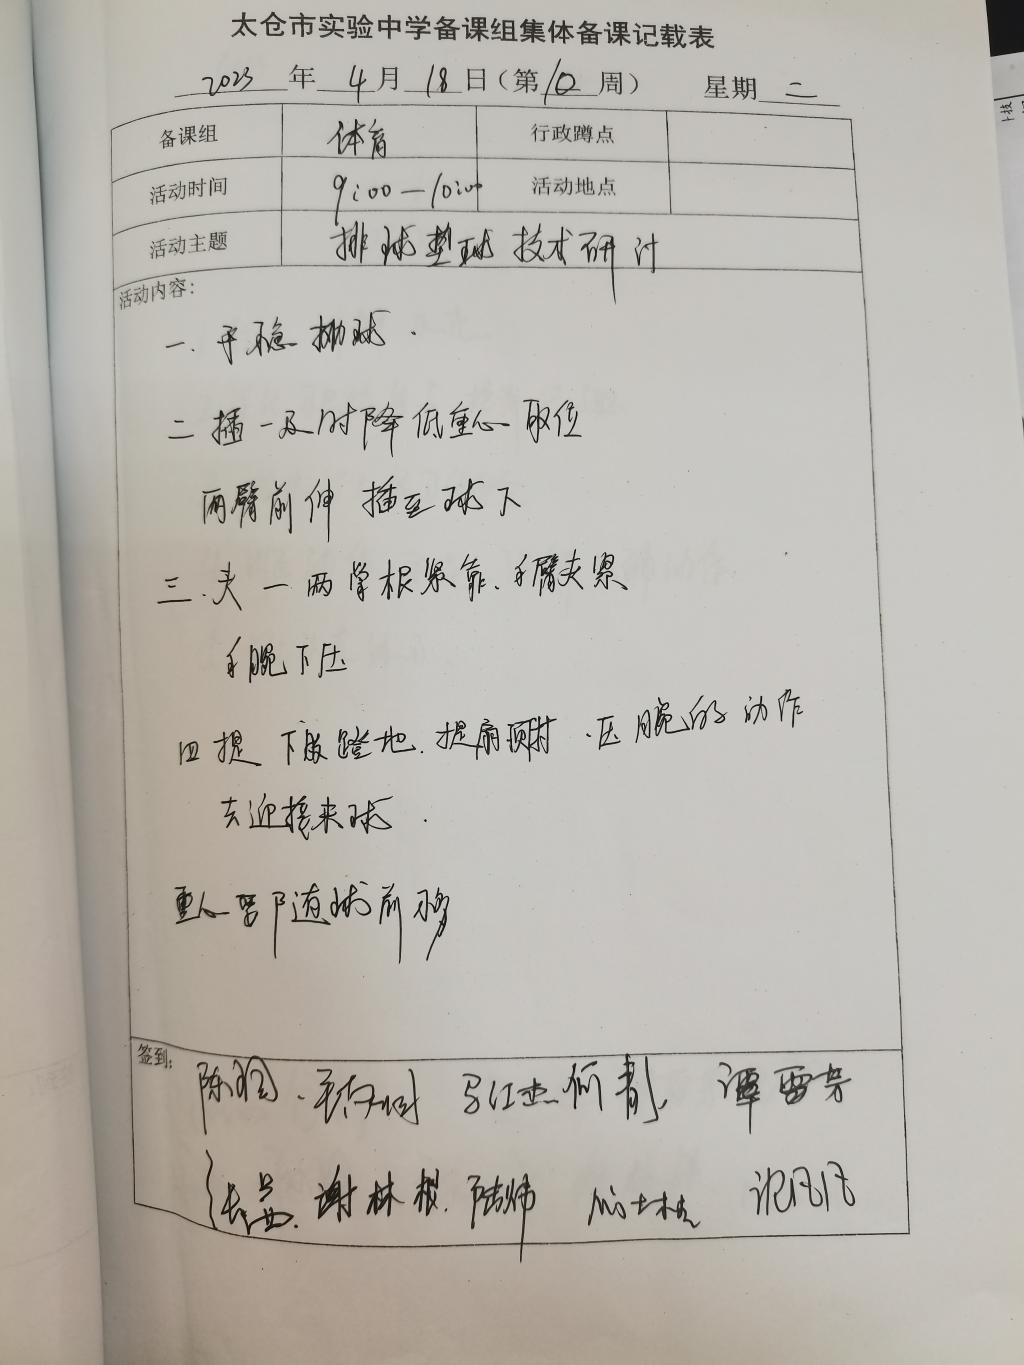 太仓市实验中学备课组集体备课记载表
2023 年 4 月 18 日（第 10 周） 星期 二
备课组 体育 行政蹲点
活动时间 9:00—10:00 活动地点
活动主题 排球垫球技术研讨
活动内容：
一、平稳抛球.
二 插 一及时降低重心 取位
两臂前伸 插至球下
三、夹 一 两掌根紧靠、手臂夹紧
手腕下压
四 提 下肢蹬地、提肩顶肘、压腕的动作
去迎接来球.
重心 随球前移
签到：
陈 马江杰 何 谭雪芳
张 谢林根 陆炜 沈凡凡